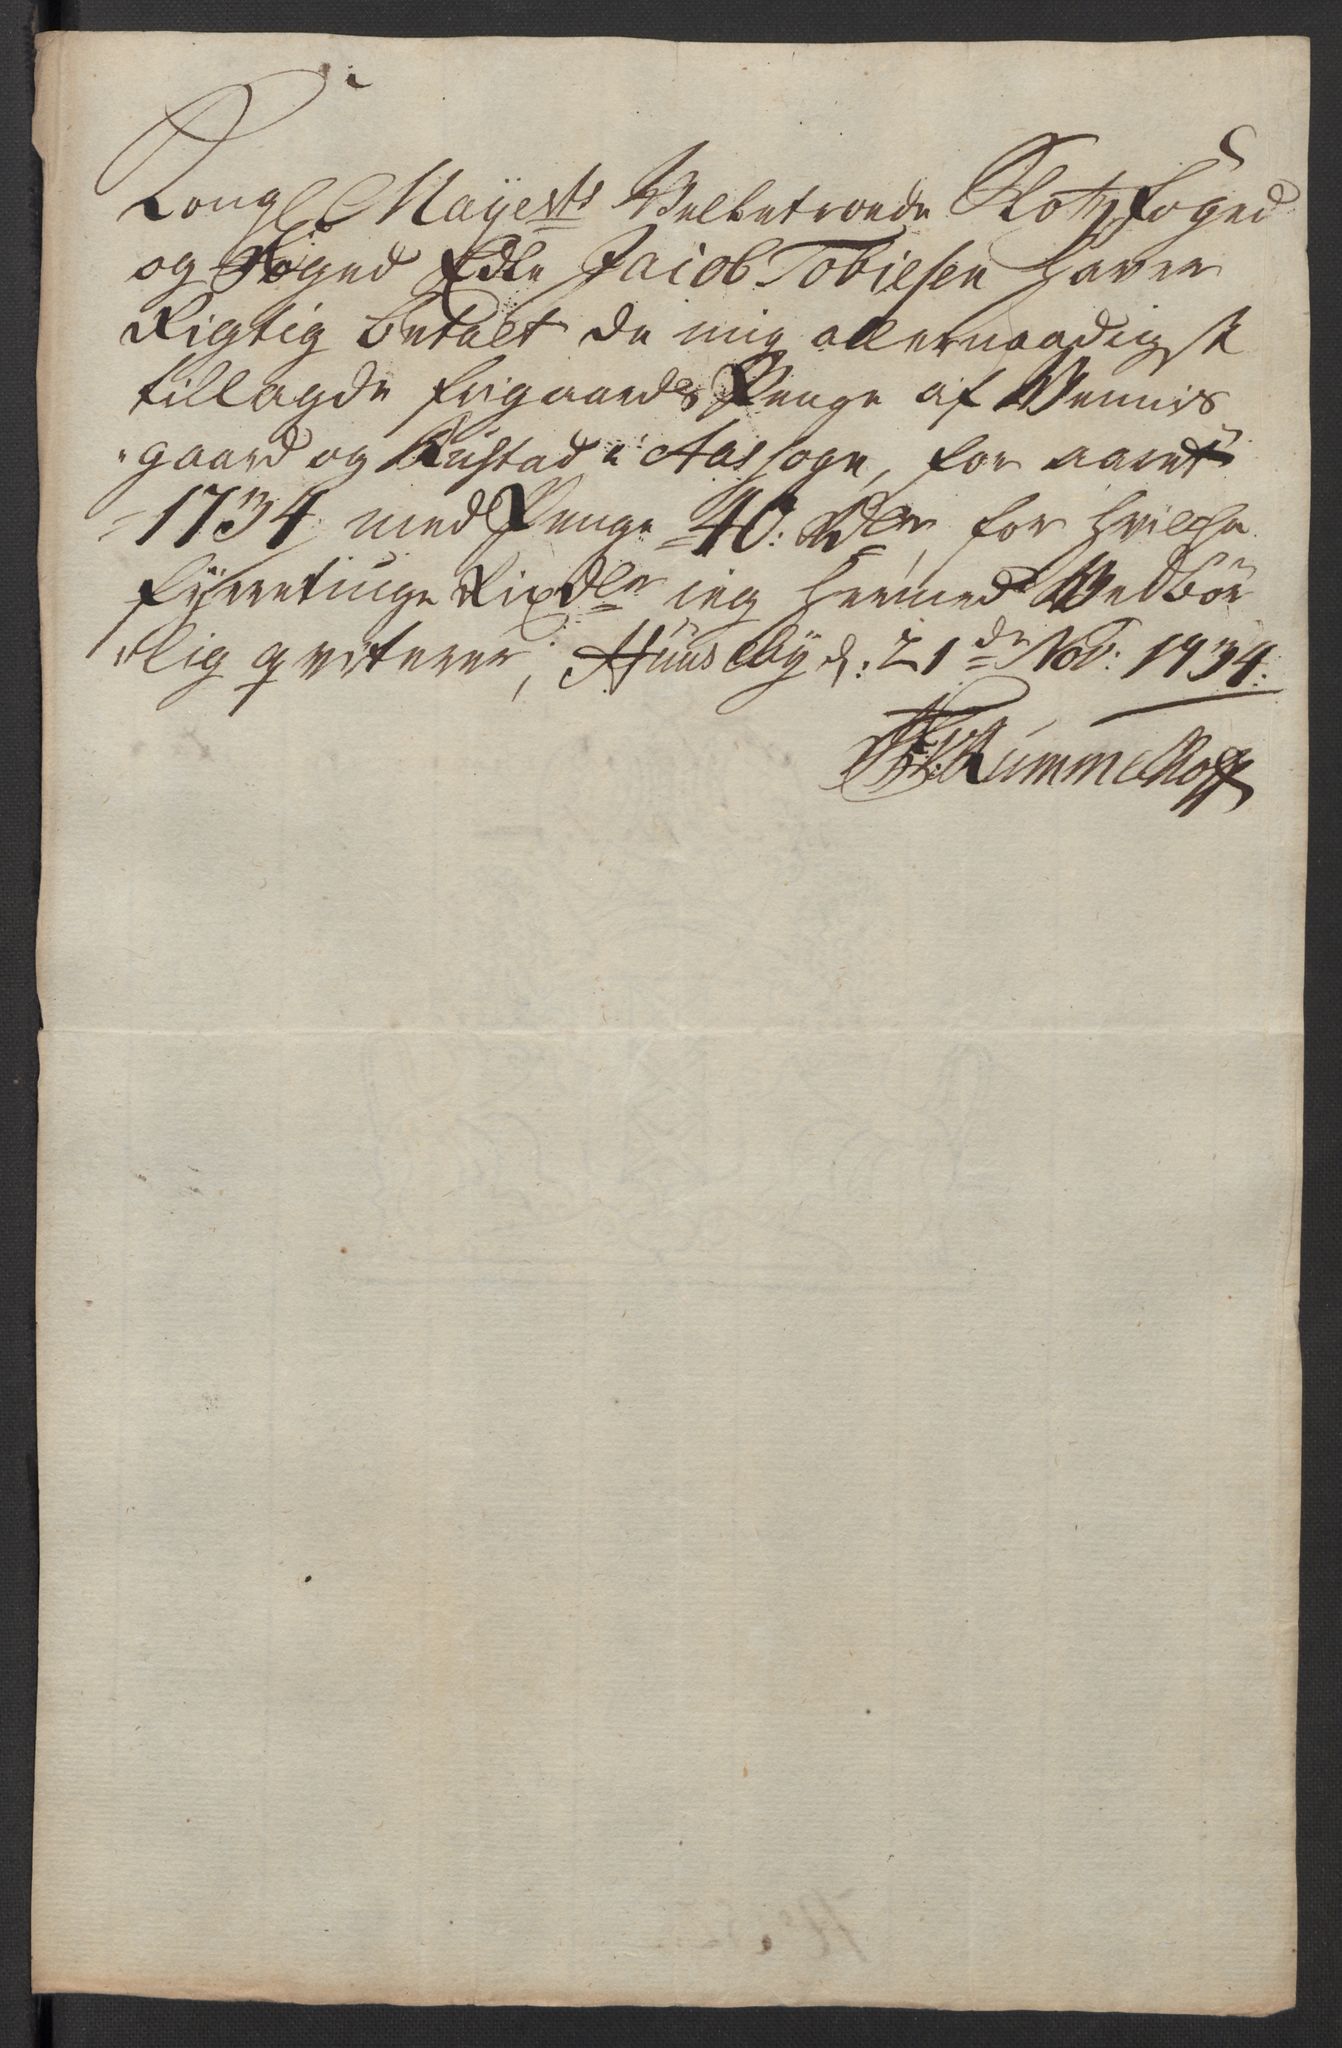 Kongl Mayests Velbetroede Slotz foged
og Foged Edle Jacob Tobiesen haver
Rigtig betalt de mig allernaadigst
tillagde frigaards Penge af Vennis
gaard og Rustad i Aas sogn, for aaret
1734 med Penge 40: Rdlr, for hvilche
fyrretiuge Rixdlr ieg hermed Vedbör
lig qviterer, Huusebÿ d: 21de Nov: 1734.
Rümmelhoff